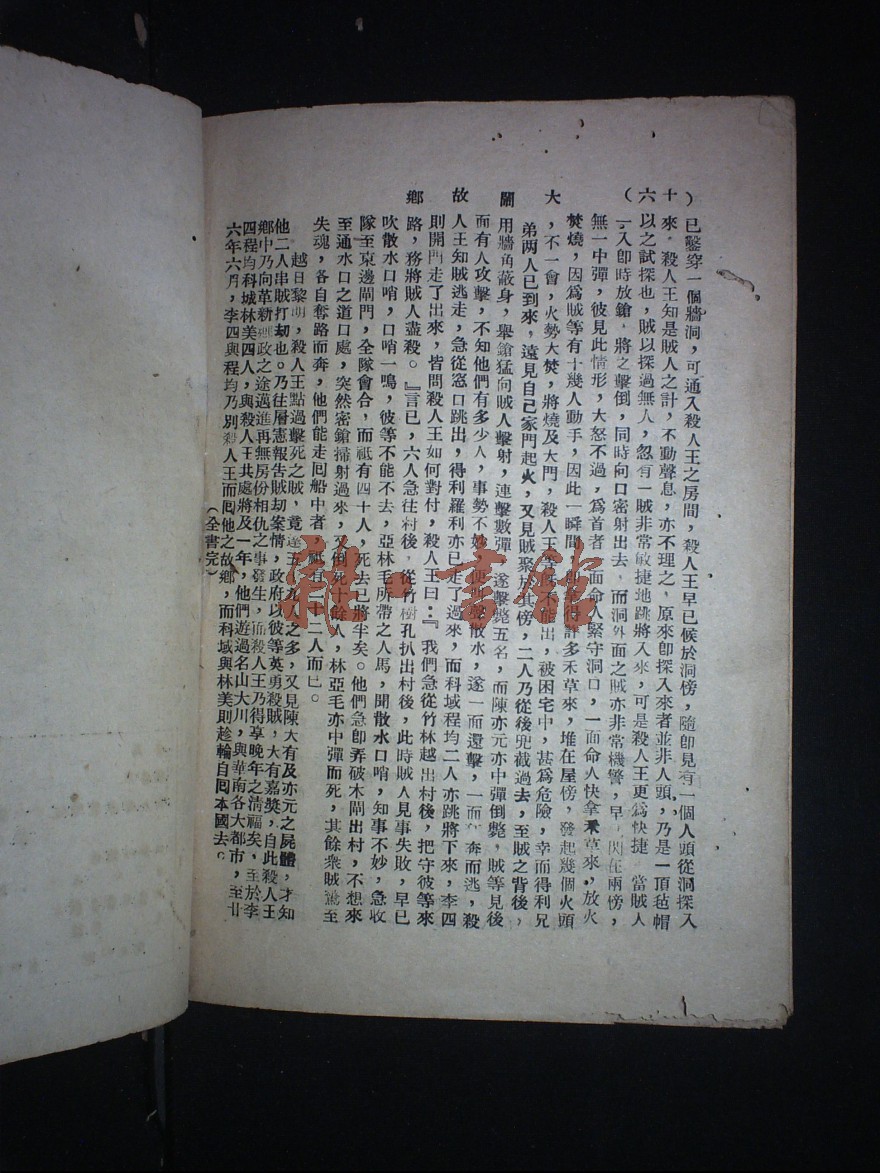 大鬧故鄉
（六十）
已鑿穿一個牆洞，可通入殺人王之房間，殺人王早已候於洞傍，隨卽見有一個人頭從洞探入
來。殺人王知是賊人之計，不動聲息，亦不理之，原來卽探入來者並非人頭，乃是一頂毡帽
以之試探也，賊以探過無人，忽有一賊非常敏捷地跳將入來，可是殺人王更爲快捷，當賊人
一入卽時放鎗，將之擊倒，同時向口密射出去，而洞外面之賊亦非常機警，早 閃在兩傍，
無一中彈，彼見此情形，大怒不過，爲首者一面命人緊守洞口，一面命人快拿禾草來，放火
焚燒，因爲賊等有十幾人動手，因此一瞬間 得許多禾草來，堆在屋傍，發起幾個火頭
，不一會，火勢大焚，將燒及大門，殺人王等 不 出，被困宅中，甚爲危險，幸而得利兄
弟两人已到來，遠見自己家門起火，又見賊聚於其傍，二人乃從後兜截過去，至賊之背後，
用牆角蔽身，舉鎗猛向賊人擊射，連擊數彈，遂擊斃五名，而陳亦元亦中彈倒斃，賊等見後
而有人攻擊，不知他們有多少人，事勢不妙， 散水，遂一面還擊，一面 奔而逃，殺
人王知賊逃走，急從窓口跳出，得利羅利亦已走了過來，而科域程均二人亦跳將下來，李四
則開門走了出來，皆問殺人王如何對付，殺人王曰：『我們急從竹林越出村後，把守彼等來
路，務將賊人盡殺。』言已，六人急往村後，從竹樹孔扒出村後，此時賊人見事失敗，早已
吹散水口哨，口哨一鳴，彼等不能不去，亞林毛所帶之人馬，聞散水口哨，知事不妙，急收
隊至東邊閘門，全隊會合，而祇有四十人，死去已將半矣。他們急卽弄破木閘出村，不想來
至通水口之道口處，突然密鎗掃射過來，又倒死十餘人，林亞毛亦中彈而死，其餘衆賊驚至
失魂，各自奪路而奔，他們能走囘船中者，祇有二十二人而已。
越日黎明，殺人王點過擊死之賊，竟達五 九人之多，又見陳大有及亦元之屍體，才知
他二人串賊打刧也。乃往層憲報告賊刧案情，政府以彼等英勇殺賊，大有嘉獎，自此殺人王
鄉中乃向革新 政之途邁進再無房份相仇之事發生，而殺人王乃得享晚年之淸福矣，至於李
四程均科域林美四人，與殺人王共處將及一年，他們遊過名山大川，與華南各大都市，至廿
六年六月，李四與程均乃別殺人王而囘他之故鄉，而科域與林美則趁輪自囘本國去。
（全書完）
雜·書館